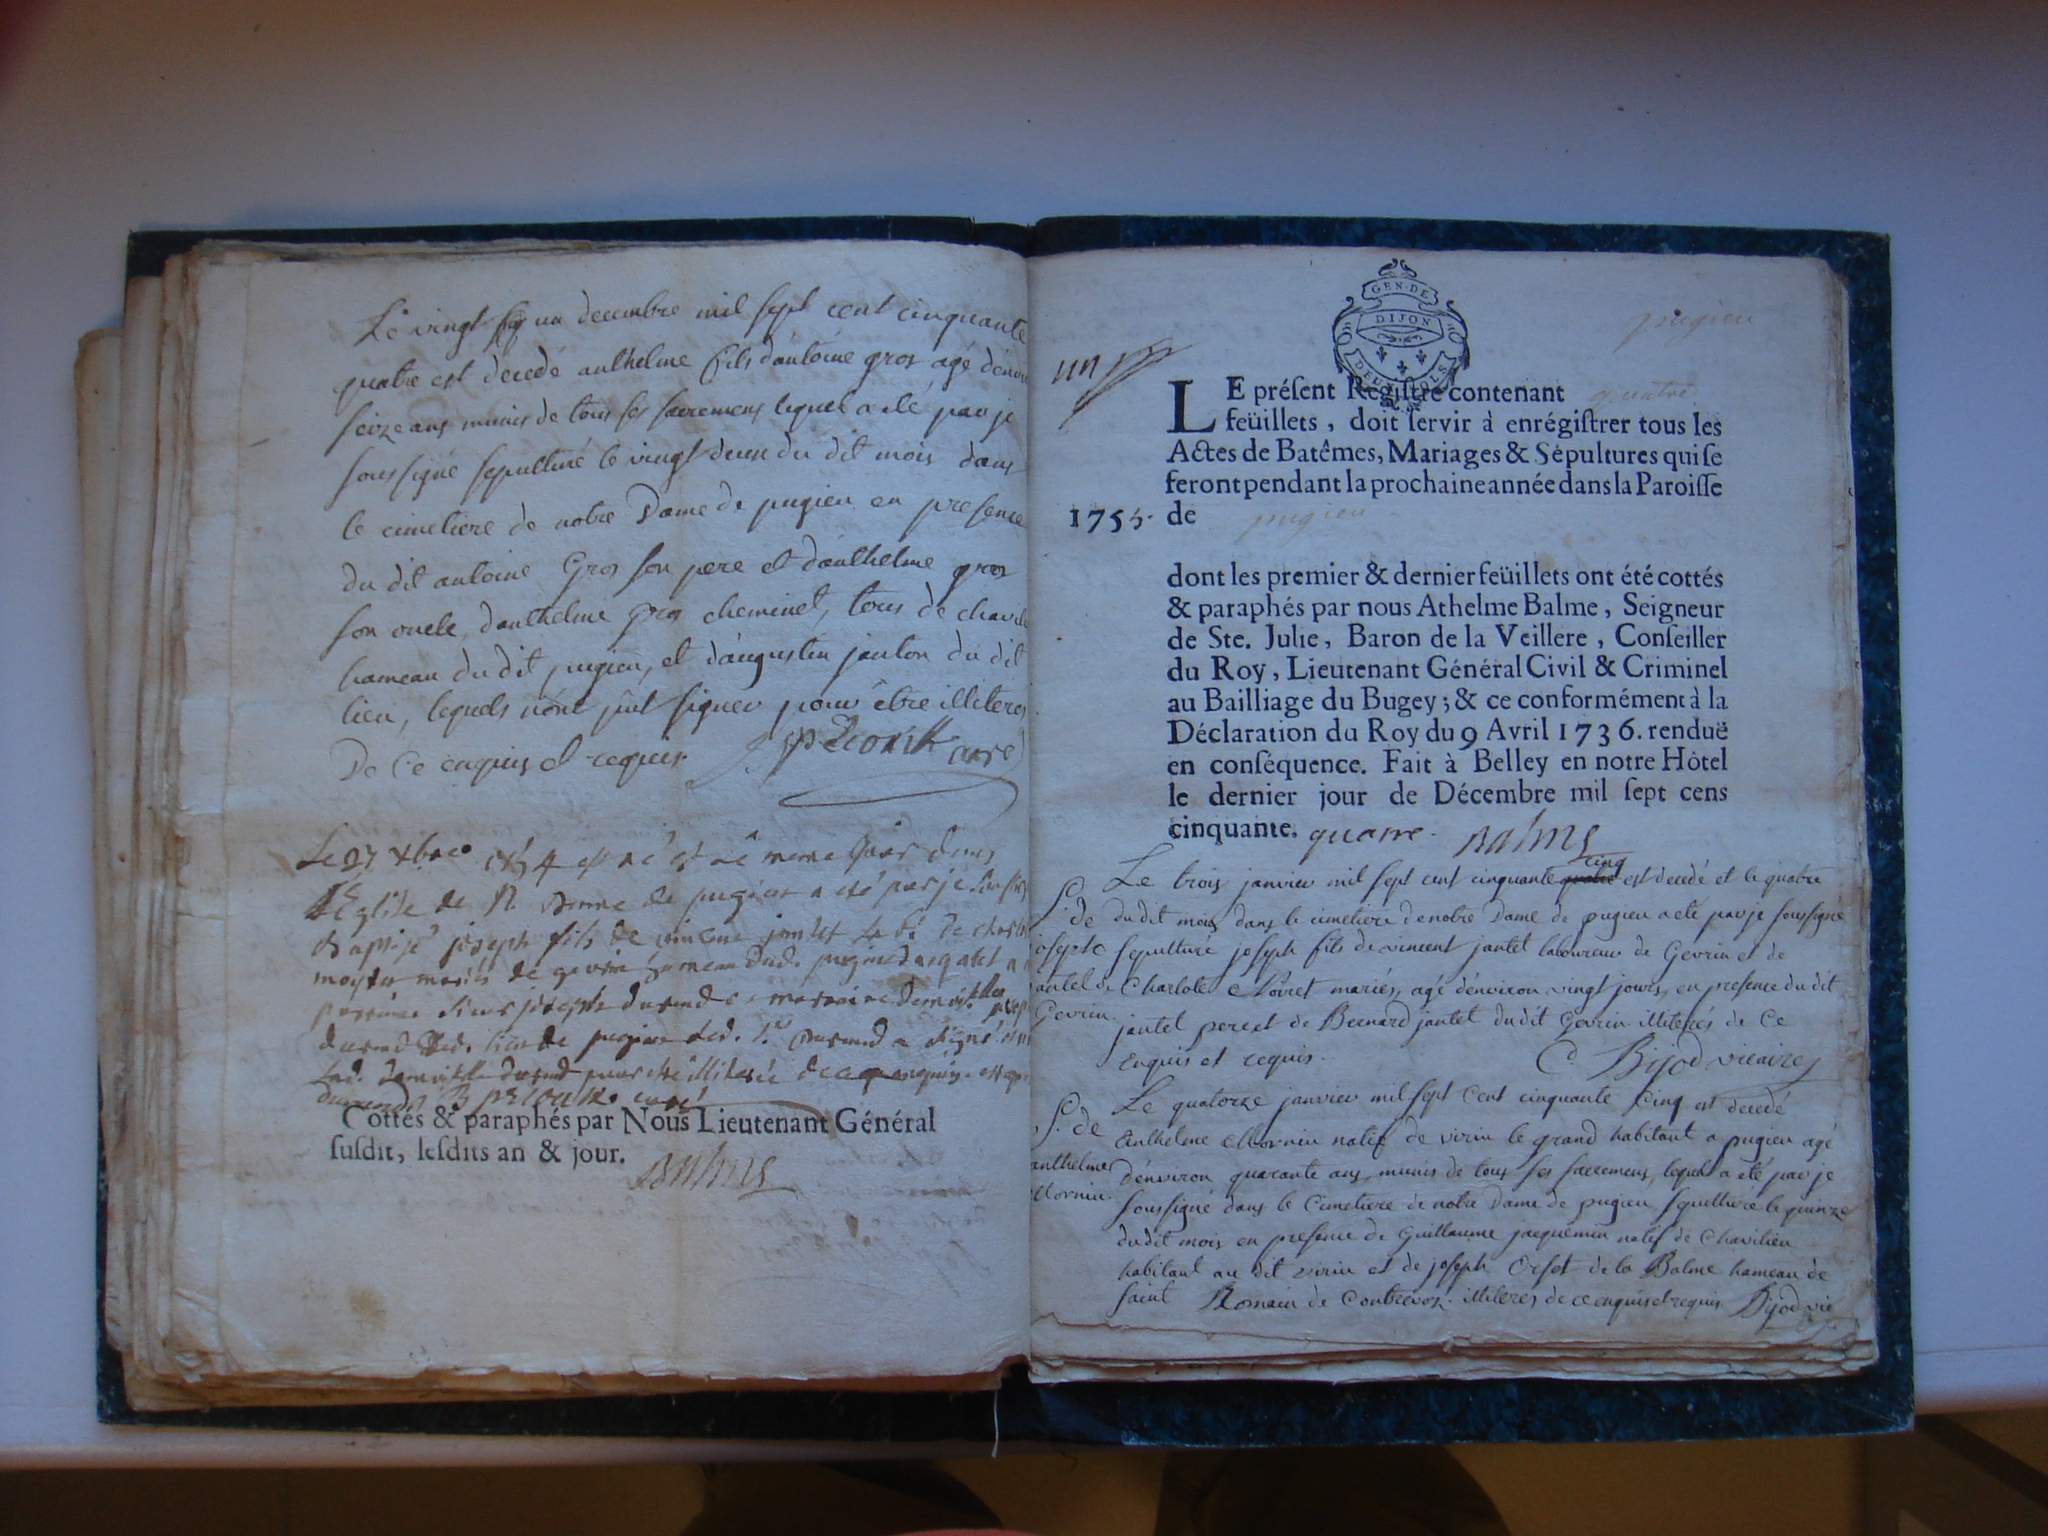 Le vingt un decembre mil sept cent cinquante
quatre est decedé anthelme fils d'antoine gros agé d'envi
seize ans munis de tous ses sacremens lequel a eté par je
soussigné sepulturé le vingt deux du dit mois dans
le cimetiere de notre Dame de pugieu en presence
du dit antoine Gros son pere et d'anthelme gros
son oncle, d'anthelme gros cheminet, tous de
hameau du dit pugieu, et d'augustin janton du dit
lieu, lequels n'ont sût signer pour être illiteres
De Ce enquis et requis. curé
Le 27 xbre 1754 est né et le meme jour dans
l'Eglise de N. Dame de pugieu a eté par je
Baptisé joseph fils de
mariés de gevrin hameau dud. pugieu
sieur joseph durand
durand lieu de pugieu led. Sr. durand a signé
Lad. durand pour etre illiterée de ce enquise
curé
Cottés & paraphés par Nous Lieutenant Général
susdit, lesdits an & jour. Balme
GEN. DE
DIJON
DEUX SOLS
pugieu
un
LE présent Registre contenant quatre
feüillets, doit servir à enrégistrer tous les
Actes de Batêmes, Mariages & Sépultures qui se
feront pendant la prochaine année dans la Paroisse
1755. de pugieu
dont les premier & dernier feüillets ont été cottés
& paraphés par nous Athelme Balme, Seigneur
de Ste. Julie, Baron de la Veillere, Conseiller
du Roy, Lieutenant Général Civil & Criminel
au Bailliage du Bugey; & ce conformément à la
Déclaration du Roy du 9 Avril 1736. renduë
en conséquence. Fait à Belley en notre Hôtel
le dernier jour de Décembre mil sept cens
cinquante. quatre. Balme
S. de josepte jantel de Gevrin.
Le trois janvier mil sept cent cinquante quatre cinq est decedé et le quatre
du dit mois dans le cimetiere de notre Dame de pugieu a eté par je soussigné
sepulturé joseph fils de vincent jantet laboureur de Gevrin et de
Charlote Moiret mariés, agé d'environ vingt jours, en presence du dit
jantet pere et de Bernard jantet du dit Gevrin. illiterés de Ce
enquis et requis. Bijod vicaire
S. de anthelme Mornin.
Le quatorze janvier mil sept Cent cinquante Cinq est decedé
Anthelme Mornin natif de virin le grand habitant a pugieu agé
d'environ quarante ans, munis de tous ses sacremens, lequel a eté par je
soussigné dans le Cimetiere de notre Dame de pugieu sepulturé le quinze
du dit mois en presence de Guillaume jacquemin natif de Chavilieu
habitant au dit virin et de joseph Orset de la Balme hameau de
saint Romain de Contrevoz. illiteres de ce enquis et requis. Bijod vic